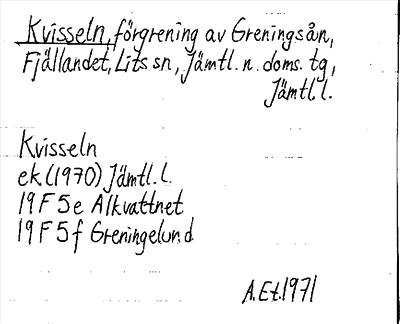 Kvisseln, förgrening av Greningsån,
Fjällandet, Lits sn, Jämtl. n. doms. tg,
Jämtl. l.
Kvisseln
ek (1970) Jämtl. l.
19 F 5 e Alkvattnet
19 F 5 f Greningelund
A.Et.1971